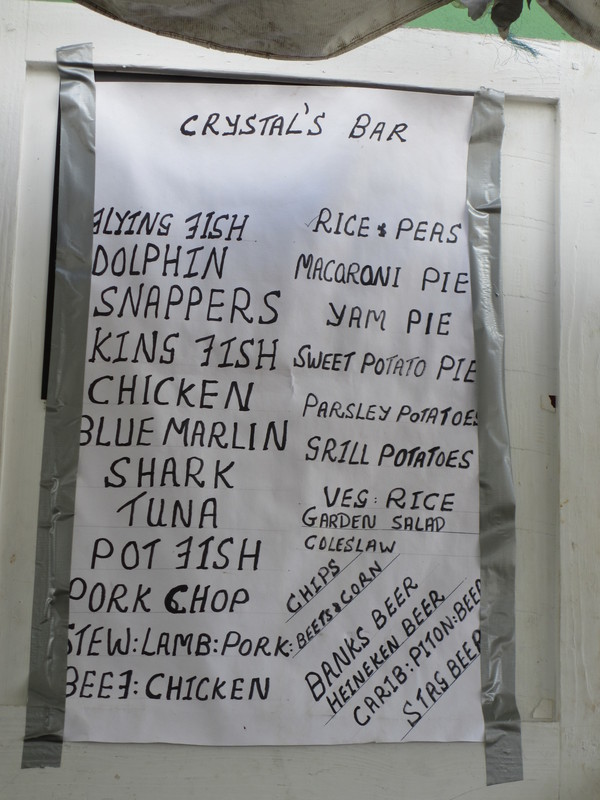 CRYSTAL'S BAR
FLYING FISH
DOLPHIN
SNAPPERS
KING FISH
CHICKEN
BLUE MARLIN
SHARK
TUNA
POT FISH
PORK CHOP
STEW:LAMB:PORK:
BEEF:CHICKEN
RICE & PEAS
MACARONI PIE
YAM PIE
SWEET POTATO PIE
PARSLEY POTATOES
GRILL POTATOES
VEG: RICE
GARDEN SALAD
COLESLAW
CHIPS
BEETS & CORN
BANKS BEER
HEINEKEN BEER
CARIB:PITON:BEER
STAG BEER